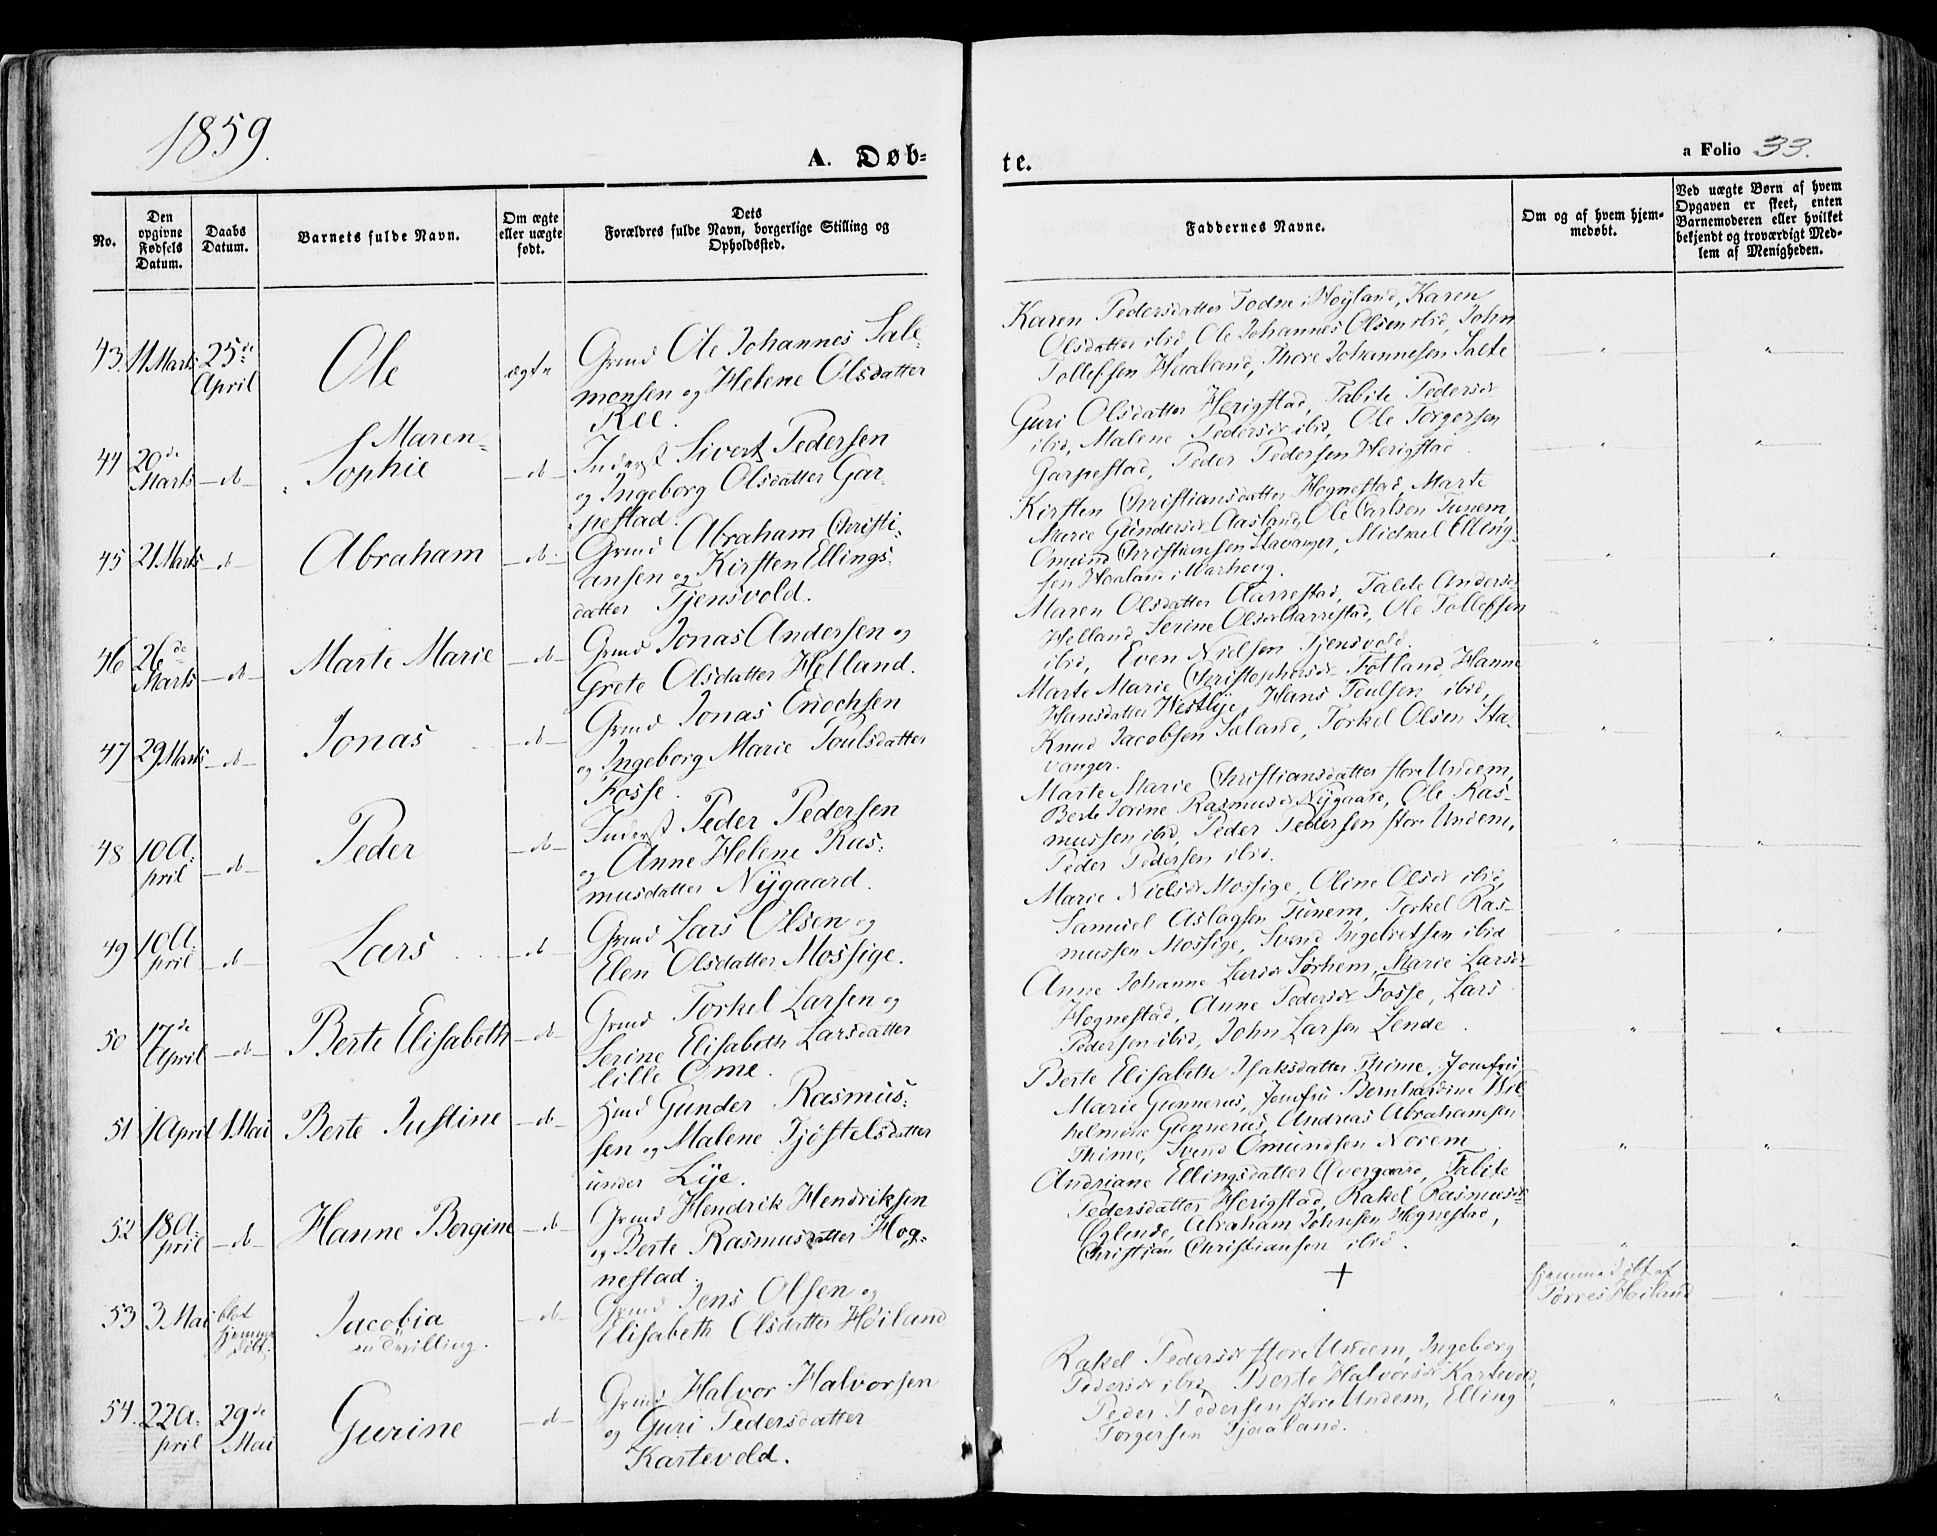 1859.
A. Døb-
te.
a Folio 33.
No.
Den
opgivne
Fødsels
Datum.
Daabs
Datum.
Barnets fulde Navn.
Om ægte
eller uægte
født.
Dets
Forældres fulde Navn, borgerlige Stilling og
Opholdssted.
Faddernes Navne.
Om og af hvem hjem-
medøbt.
Ved uægte Børn af hvem
Opgaven er skeet, enten
Barnemoderen eller hvilket
bekjendt og troværdigt Med-
lem af Menigheden.
43. 11 Marts 25de
April
Ole
ægte
Grmd Ole Johannes Sale-
monsen og Helene Olsdatter
Ree.
Karen Pedersdatter Todne i Høyland, Karen
Olsdatter ibid, Ole Johannes Olsen ibid, John
Tollefsen Haaland, Thore Johannesen Salte
44 20de
Marts -d-
Maren-
Sophie
-d-
Inderst Sivert Pedersen
og Ingeborg Olsdatter Gar-
pestad.
Guri Olsdatter Herigstad, Tabite Pedersdr
ibid, Malene Pedersdr ibid, Ole Torgersen
Garpestad, Peder Pedersen Herigstad
45 21 Marts -d-
Abraham
-d-
Grmd Abraham Christi-
ansen og Kirsten Ellings-
datter Tjensvold.
Kirsten Christiansdatter Hognestad, Marte
Marie Gundersdr Aasland, Ole Carlsen Tunem
Omund Christiansen Stavanger, Michael Elling-
sen Haaland i Warhoug.
46 26de
Marts -d-
Marte Marie
-d-
Grmd Jonas Andersen og
Grete Olsdatter Helland.
Maren Olsdatter Aarrestad, Talete Andersdr
Helland, Serine Olsdr Aarrestad, Ole Tollefsen
ibid, Even Nielsen Tjensvold.
47 29 Marts -d-
Jonas
-d-
Grmd Jonas Enochsen
og Ingeborg Marie Poulsdatter
Fosse.
Marte Marie Christophersdr Totland, Hanne
Hansdatter Westlye, Hans Poulsen ibid,
Knud Jacobsen Søland, Torkel Olsen Sta-
vanger.
48 10 A-
pril -d-
Peder
-d-
Inderst Peder Pedersen
og Anne Helene Ras-
musdatter Nygaard.
Marte Marie Christiansdatter store Undem,
Berte Serine Rasmusdr Nygaard, Ole Ras-
mussen ibid, Peder Pedersen store Undem,
Peder Pedersen ibid.
49 10 A-
pril -d-
Lars
-d-
Grmd Lars Olsen og
Elen Olsdatter Mossige.
Marie Nielsdr Mossige, Oline Olsdr ibid,
Samuel Aslagsen Tunem, Torkel Ras-
mussen Mossige, Svend Ingebretsen ibid
50 17de
April -d-
Berte Elisabeth
-d-
Grmd Torkel Larsen og
Serine Elisabeth Larsdatter
lille Ome.
Anne Johanne Larsdr Sørhem, Marie Larsdr
Hognestad, Anne Pedersdr Fosse, Lars
Pedersen ibid, John Larsen Lende.
51 1 April 1 Mai
Berte Justine
-d-
Hmd Gunder Rasmus-
sen og Malene Tjøstelsdatter
under Lye.
Berte Elisabeth Isaksdatter Thime, Jomfru
Marie Gunnerus, Jomfru Bernhardine Wil-
helmine Gunnerus, Andreas Abrahamsen
Thime, Svend Omundsen Norem
52 18 A-
pril -d-
Hanne Bergine
-d-
Grmd Hendrik Hendriksen
og Berte Rasmusdatter Hog-
nestad.
Andriane Ellingsdatter Qvergaard, Tabite
Pedersdatter Herigstad, Rakel Rasmusdr
Øglende, Abraham Johnsen Hognestad,
Christian Christiansen ibid.
53 3 Mai blot
hjemme
døbt.
Jacobia
en Tvilling.
-d-
Grmd Jens Olsen og
Elisabeth Olsdatter Høiland
+
hjemmedøbt af
Tørres Høiland
54. 22 A-
pril 29de
Mai
Gurine
-d-
Grmd Halvor Halvorsen
og Guri Pedersdatter
Kartevold.
Rakel Pedersdr store Undem, Ingeborg
Pedersdr ibid, Berte Halvorsdr Kartevold,
Peder Pedersen store Undem, Elling
Torgersen Tjaaland.